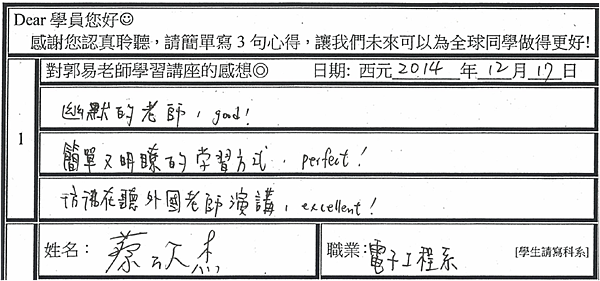 Dear 學員您好☺
感謝您認真聆聽，請簡單寫 3 句心得，讓我們未來可以為全球同學做得更好!
對郭易老師學習講座的感想◎ 日期: 西元 2014 年 12 月 17 日
1
幽默的老師，good!
簡單又明瞭的学習方式，perfect!
彷彿在聽外國老師演講，excellent!
姓名: 蔡欣杰 職業: 電子工程系 [學生請寫科系]